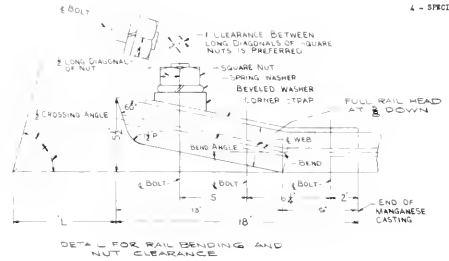 4 - SPECI
℄ BOLT
1 CLEARANCE BETWEEN
LONG DIAGONALS OF SQUARE
NUTS IS PREFERRED
℄ LONG DIAGONAL
OF NUT
SQUARE NUT
SPRING WASHER
BEVELED WASHER
CORNER STRAP
FULL RAIL HEAD
AT DOWN
½ CROSSING ANGLE
60°
BEND ANGLE
℄ WEB
BEND
℄ BOLT
℄ BOLT
℄ BOLT
5
2"
END OF
MANGANESE
CASTING
L
18"
DETAIL FOR RAIL BENDING AND
NUT CLEARANCE